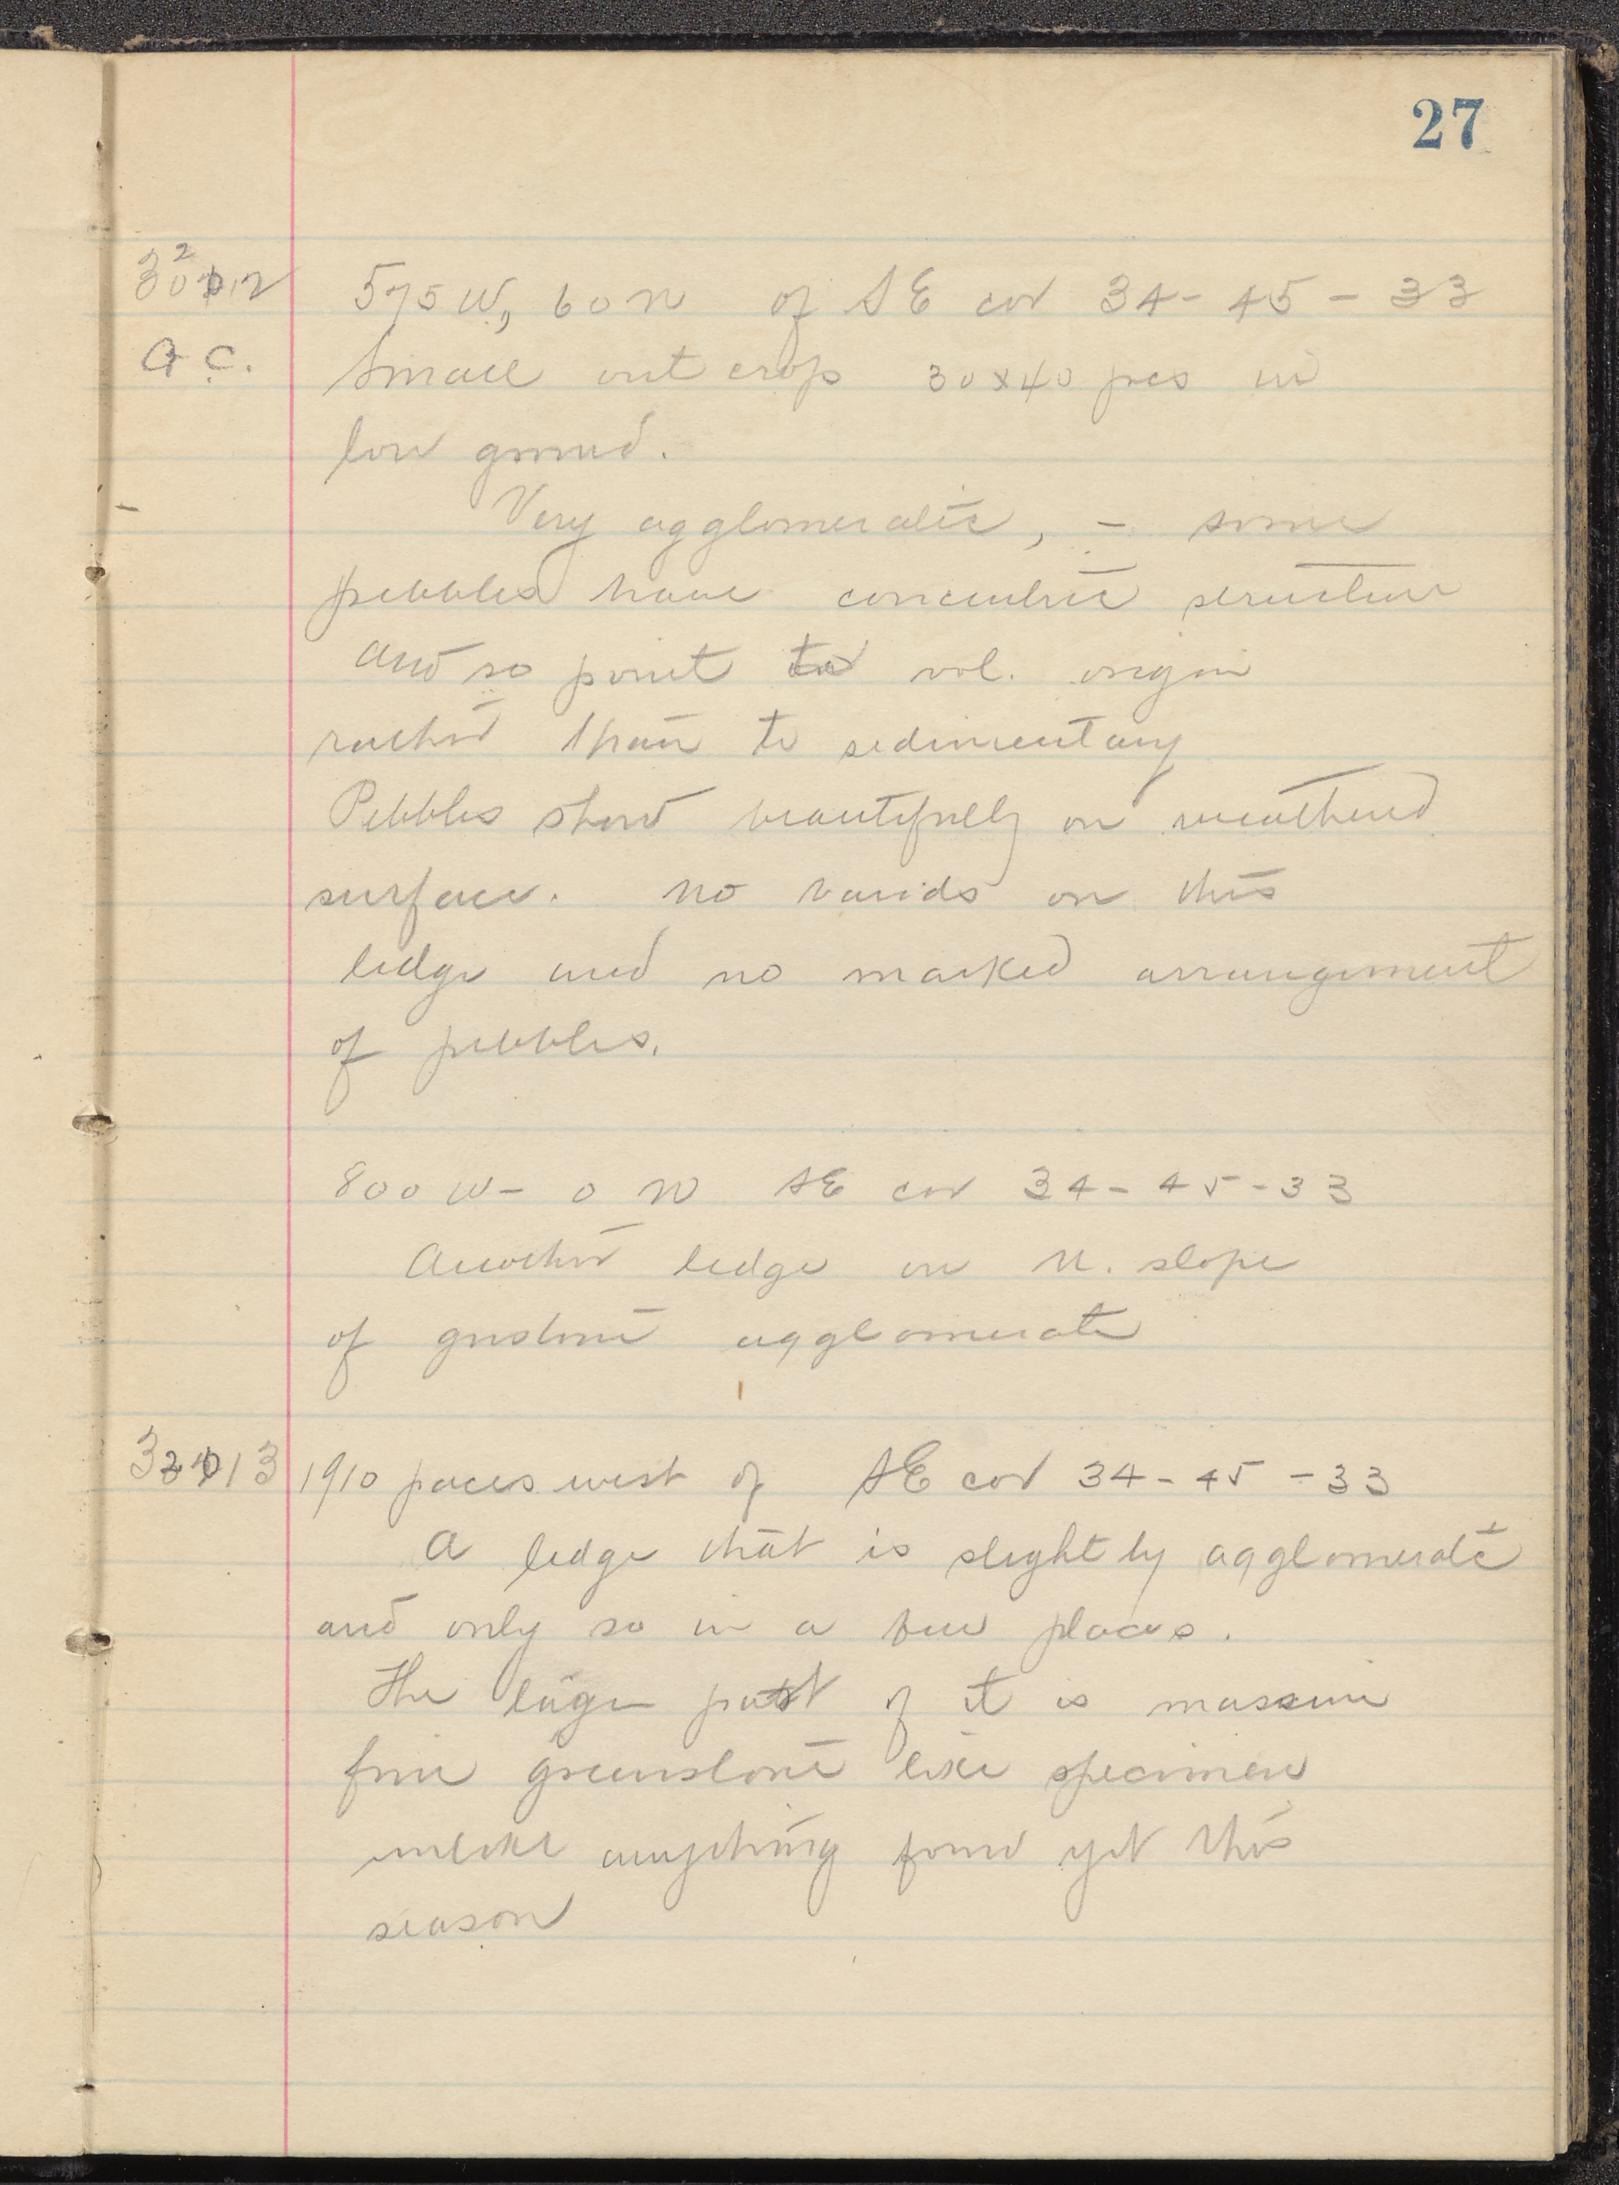 27
32012
A. C.
575 W, 60 N of SE cor 34-45-33
Small out crop 30x40 pcs in
low ground.
Very agglomeratic, - some
pebbles have concentric structure
and so point to vol. origin
rather than to sedimentary
Pebbles show beautifully on weathered
surface. No bands on this
ledge and no marked arrangement
of pebbles.
800 W - 0 N SE cor 34-45-33
Another ledge on N. slope
of gnstone agglomerate
32013
1910 paces west of SE cor 34-45-33
A ledge that is slightly agglomeratic
and only so in a few places.
The larger part of it is massive
fine greenstone like specimen
unlike anything found yet this
season